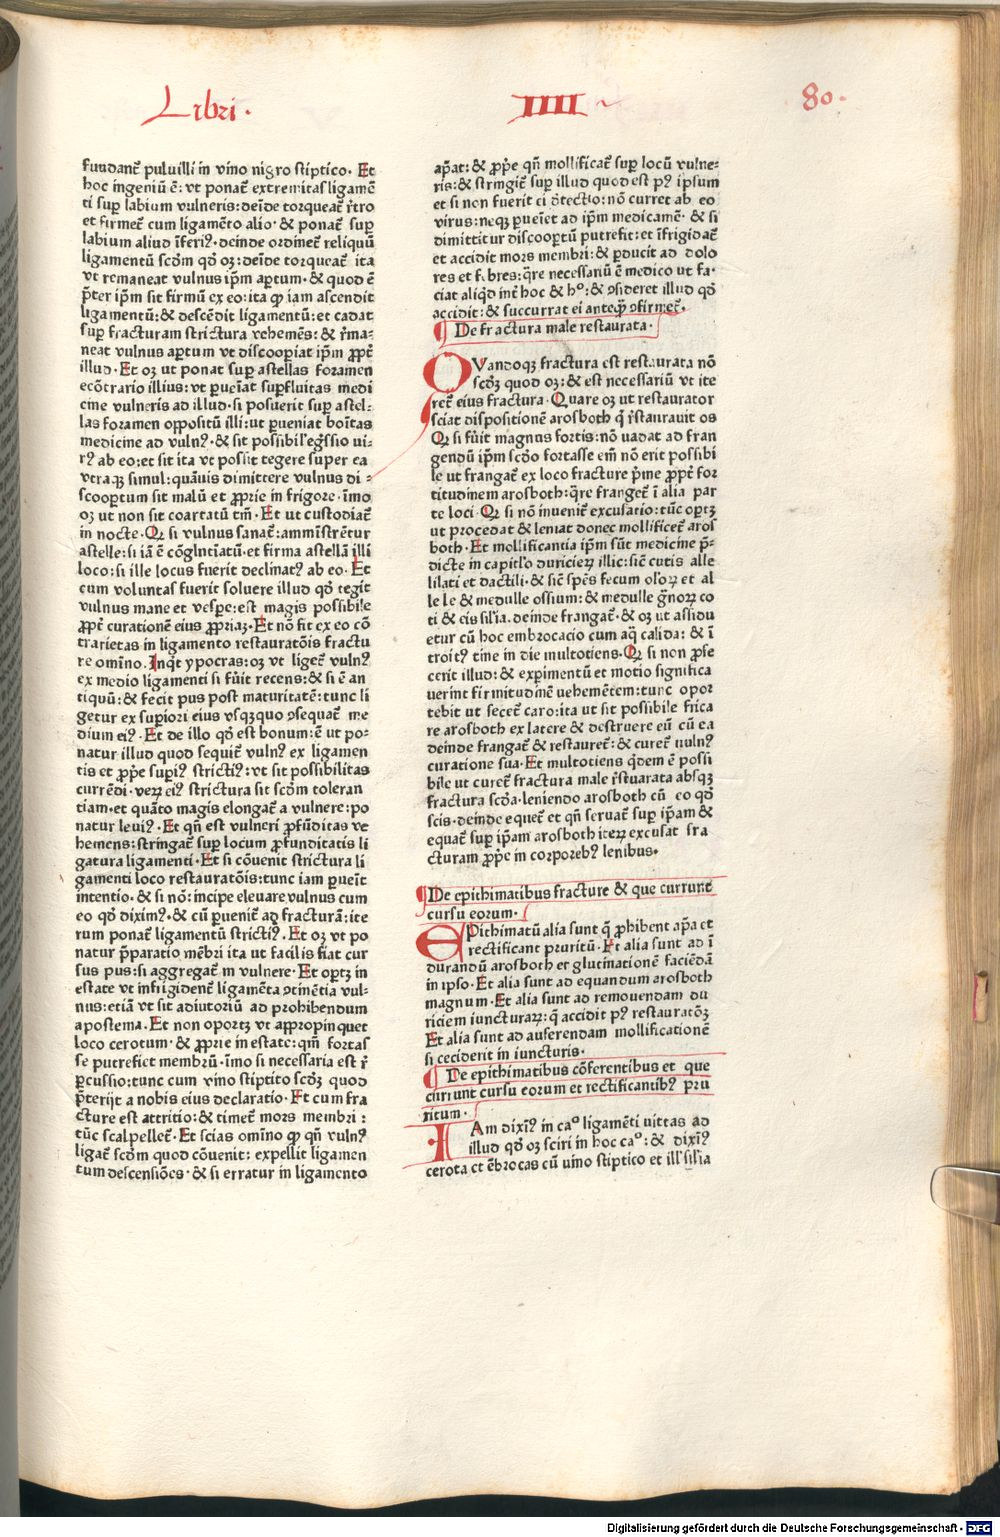 Libri.
IIII
80.
fundant᷑ puluilli in vino nigro stiptico. Et
hoc ingeniū ē: vt ponat᷑ extremitas ligamē
ti sup labium vulneris: deīde torqueat᷑ r̄tro
et firmet᷑ cum ligamēto alio. & ponat᷑ sup
labium aliud īferiꝰ. deinde ordinet᷑ reliquū
ligamentū scd̄m qd̄ oꝫ: deīde torqueat᷑ ita
vt remaneat vulnus ip̄m aptum. & quod ē
p̄ter ip̄m sit firmū ex eo: ita ꝙ iam ascendit
ligamentū: & descēdit ligamentū: et cadat
sup fracturam strictura vehemēs: & r̄ma-
neat vulnus aptum vt discoopiat ip̄m ꝓpt᷑
illud. Et oꝫ ut ponat sup astellas foramen
ecōtrario illius: vt pueīat supfluitas medi
cine vulneris ad illud. si posuerit sup astel-
las foramen oppositū illi: ut pueniat boītas
medicine ad vulnꝰ. & sit possibil' egr̄ssio ui-
rꝰ ab eo: et sit ita vt possit tegere super ea
vtraqꝫ simul: quāuis dimittere vulnus di-
scooptum sit malū et ꝓprie in frigore. īmo
oꝫ ut non sit coartatū tm̄. Et ut custodiat᷑
in nocte. Qꝫ si vulnus sanat᷑: amministrētur
astelle: si iā ē cōglutiatū. et firma astellā illi
loco: si ille locus fuerit declinatꝰ ab eo. Et
cum voluntas fuerit soluere illud qd̄ tegit
vulnus mane et vespe: est magis possibile
ꝓpt᷑ curationē eius ꝓpriaꝫ. Et nō fit ex eo cō
trarietas in ligamento restauratōis fractu
re omīno. Inqt ypocras: oꝫ vt liget᷑ vulnꝰ
ex medio ligamenti si fūit recens: & si ē an
tiquū: & fecit pus post maturitatē: tunc li
getur ex supiori eius vsqꝫquo ↄsequat᷑ me
dium eiꝰ. Et de illo qd̄ est bonum: ē ut po-
natur illud quod sequit᷑ vulnꝰ ex ligamen
tis et ꝓpe supiꝰ strictiꝰ: vt sit possibilitas
currēdi. veꝝ eiꝰ strictura sit scd̄m toleran
tiam. et quāto magis elongat᷑ a vulnere: po
natur leuiꝰ. Et qn̄ est vulneri ꝓfūditas ve
hemens: stringat᷑ sup locum ꝓfunditatis li
gatura ligamenti. Et si cōuenit strictura li
gamenti loco restauratōis: tunc iam pueīt
intentio. & si nō: incipe eleuare vulnus cum
eo qd̄ diximꝰ. & cū puenit᷑ ad fracturā: ite
rum ponat᷑ ligamentū strictiꝰ. Et oꝫ vt po
natur p̄paratio mēbri ita ut facilis fiat cur
sus pus: si aggregat᷑ in vulnere. Et optꝫ in
estate vt infrigident᷑ ligamēta ↄtinētia vul-
nus: etiā vt sit adiutoriū ad prohibendum
apostema. Et non oportꝫ vt appropinquet
loco cerotum. & ꝓprie in estate: qm̄ fortas
se putrefiet membrū. īmo si necessaria est r̄
pcussio: tunc cum vino stiptito scd̄ꝫ quod
p̄terijt a nobis eius declaratio. Et cum fra
cture est attritio: & timet᷑ mors membri:
tūc scalpellet᷑. Et scias omīno ꝙ qn̄ vulnꝰ
ligat᷑ scd̄m quod cōuenit: expellit ligamen
tum descensiōes. & si erratur in ligamento
ap̄at: & ꝓpe qn̄ mollificat᷑ sup locū vulne-
ris: & stringit᷑ sup illud quod est pꝰ ipsum
et si non fuerit ei d̄tectio: nō curret ab eo
virus: neqꝫ pueīet ad ip̄m medicamē. & si
dimittitur discooptū putrefit: et īfrigidat᷑
et accidit mors membri: & pducit ad dolo
res et febres: q̄re necessariū ē medico ut fa-
ciat aliqd int᷑ hoc & hº: & ↄsideret illud qd̄
accidit: & succurrat ei anteqꝫ ↄfirmet᷑.
¶ De fractura male restaurata.
QVandoqꝫ fractura est restaurata nō
scd̄ꝫ quod oꝫ: & est necessariū vt ite
ret᷑ eius fractura. Quare oꝫ ut restaurator
sciat dispositionē arosboth q̄ r̄stauravit os
Qꝫ si fūit magnus fortis: nō uadat ad fran
gendū ip̄m scd̄o fortasse em̄ nō erit possibi
le ut frangat᷑ ex loco fracture p̄me ꝓpt᷑ for
titudinem arosboth: q̄re franget᷑ ī alia par
te loci. Qꝫ si nō inuenit᷑ excusatio: tūc optꝫ
ut procedat & leniat donec mollificet᷑ aros
both. Et mollificantia ip̄m sūt medicine p̄-
dicte in capit̄lo duricieꝝ illic: sic̄ cutis alle
lilati et dactili. & sic̄ spēs fecum oloꝝ et al
le le & medulle ossium: & medulle ḡnoꝝ co
ti & eis sil'ia. deinde frangat᷑. & oꝫ ut assidu
etur cū hoc embrocacio cum aq̄ calida: & ī
troitꝰ tine in die multotiens. Qꝫ si non ꝓfe
cerit illud: & expimentū et motio significa
uerint firmitudinē uehemētem: tunc opor
tebit ut secet᷑ caro: ita ut sit possibile frica
re arosboth ex latere & destruere eū cū ea
deinde frangat᷑ & restauret᷑: & curet᷑ uulnꝰ
curatione sua. Et multotiens q̄dem ē possi
bile ut curet᷑ fractura male r̄stuarata absqꝫ
fractura scd̄a. leniendo arosboth cū eo qd̄
scis. deinde equet᷑ et qn̄ seruat᷑ sup ip̄am &
equat᷑ sup ip̄am arosboth iteꝝ excusat fra
cturam ꝓpe in corporebꝰ lenibus.
¶ De epithimatibus fracture & que currunt᷑
cursu eorum.
EPithimatū alia sunt q̄ ꝓhibent ap̄a et
rectificant pruritū. Et alia sunt ad ī
durandū arosboth et glutinationē faciēdā
in ipso. Et alia sunt ad equandum arosboth
magnum. Et alia sunt ad remouendam du
riciem iuncturaꝝ: q̄ accidit pꝰ restauratōꝫ
Et alia sunt ad auferendam mollificationē
si ceciderit in iuncturis.
¶ De epithimatibus cōferentibus et que
currunt cursu eorum et rectificantibꝰ pru
ritum.
IAm dixīꝰ in caº ligamēti uittas ad
illud qd̄ oꝫ sciri in hoc caº: & dixīꝰ
cerota et ēbrocas cū uino stiptico et ill' sil'ia
Digitalisierung gefördert durch die Deutsche Forschungsgemeinschaft - DFG